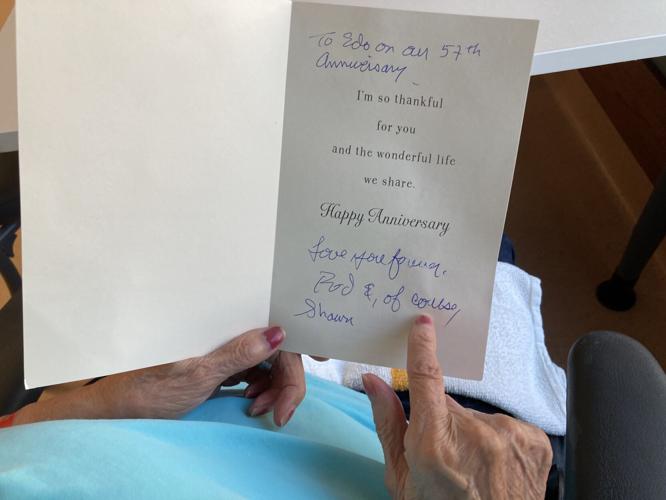 To Edo on our 57th
Anniversary
I'm so thankful
for you
and the wonderful life
we share.
Happy Anniversary
Love you forever.
Rod &, of course,
Shawn